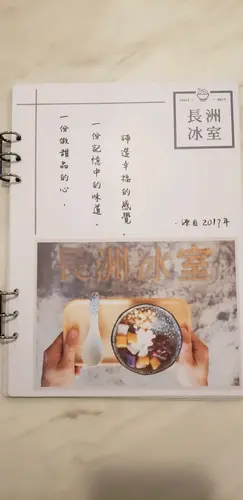 長洲
冰室
締造幸福的感覺，
一份記憶中的味道，
一份做甜品的心，
·源自2017年
長洲冰室